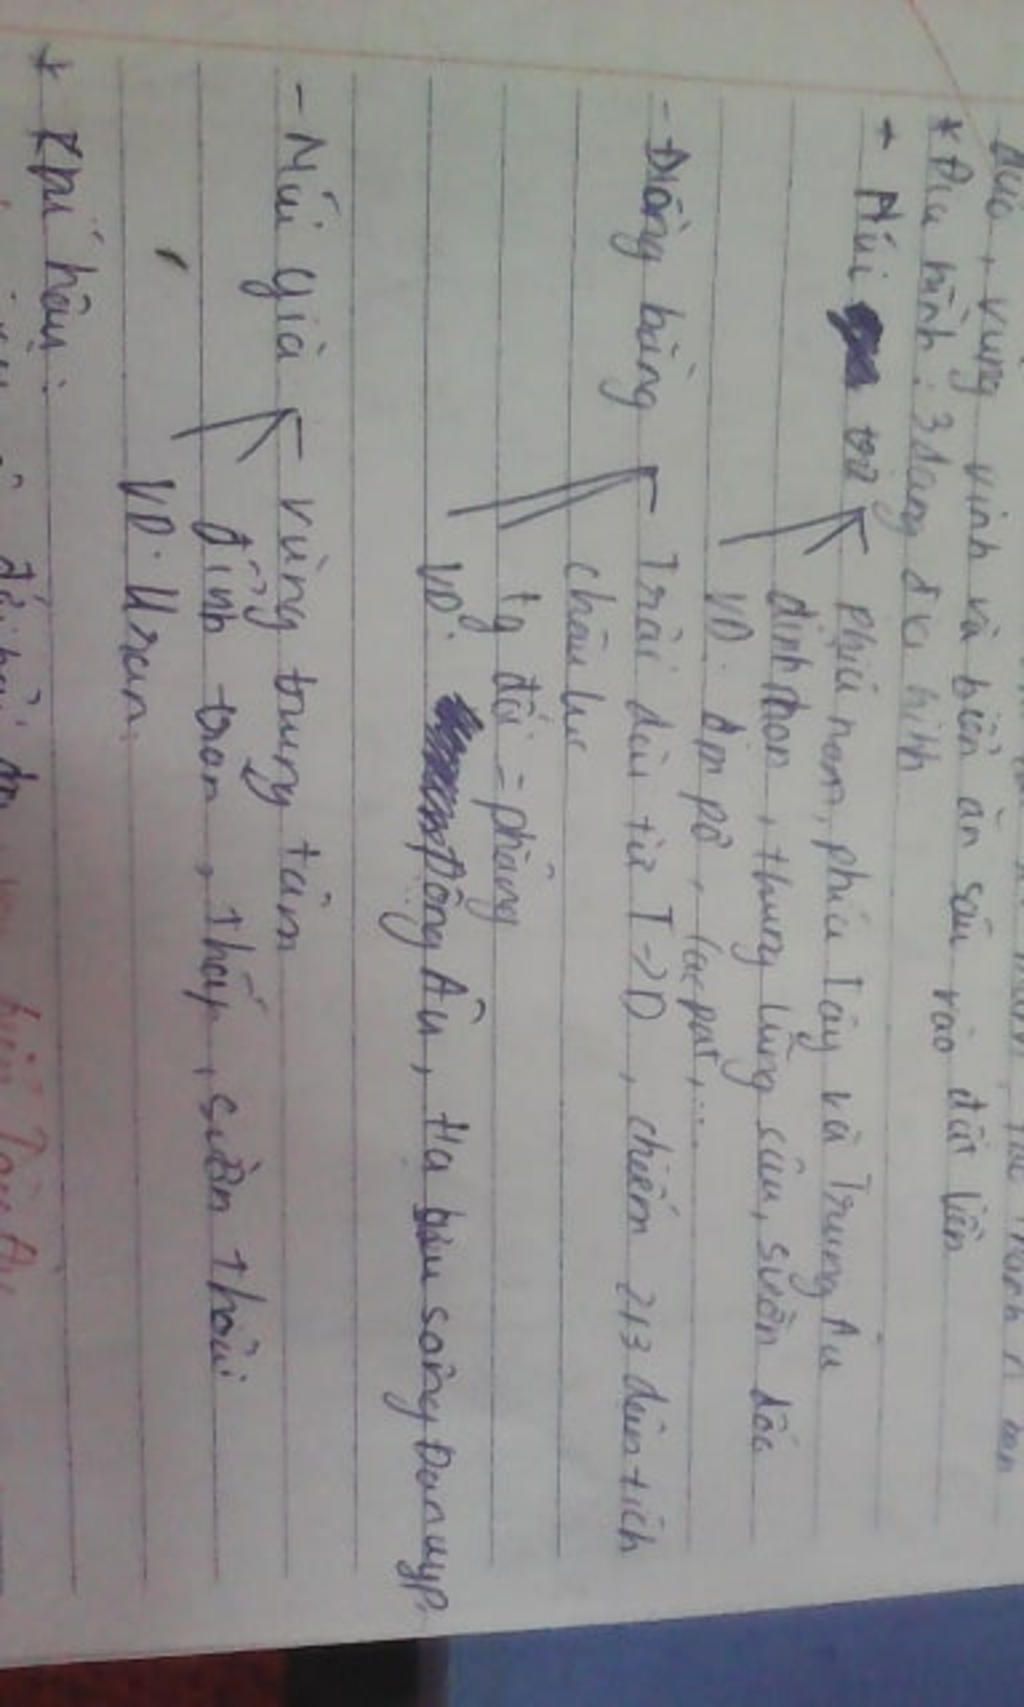 đảo, vũng vịnh và biển ăn sâu vào đất liền
* Địa hình: 3 dạng địa hình
+ Núi trẻ
phía nam, phía Tây và Trung Âu
đỉnh nhọn, thung lũng sâu, sườn dốc
VD: Anpơ, Cacpat,...
- Đồng bằng
Trải dài từ T->Đ, chiếm 2/3 diện tích
châu lục
tg đối = phẳng
VD: Đông Âu, Hạ lưu sông Đanuyp.
- Núi già
vùng trung tâm
đỉnh tròn, thấp, sườn thoải
VD: Uran.
* Khí hậu: